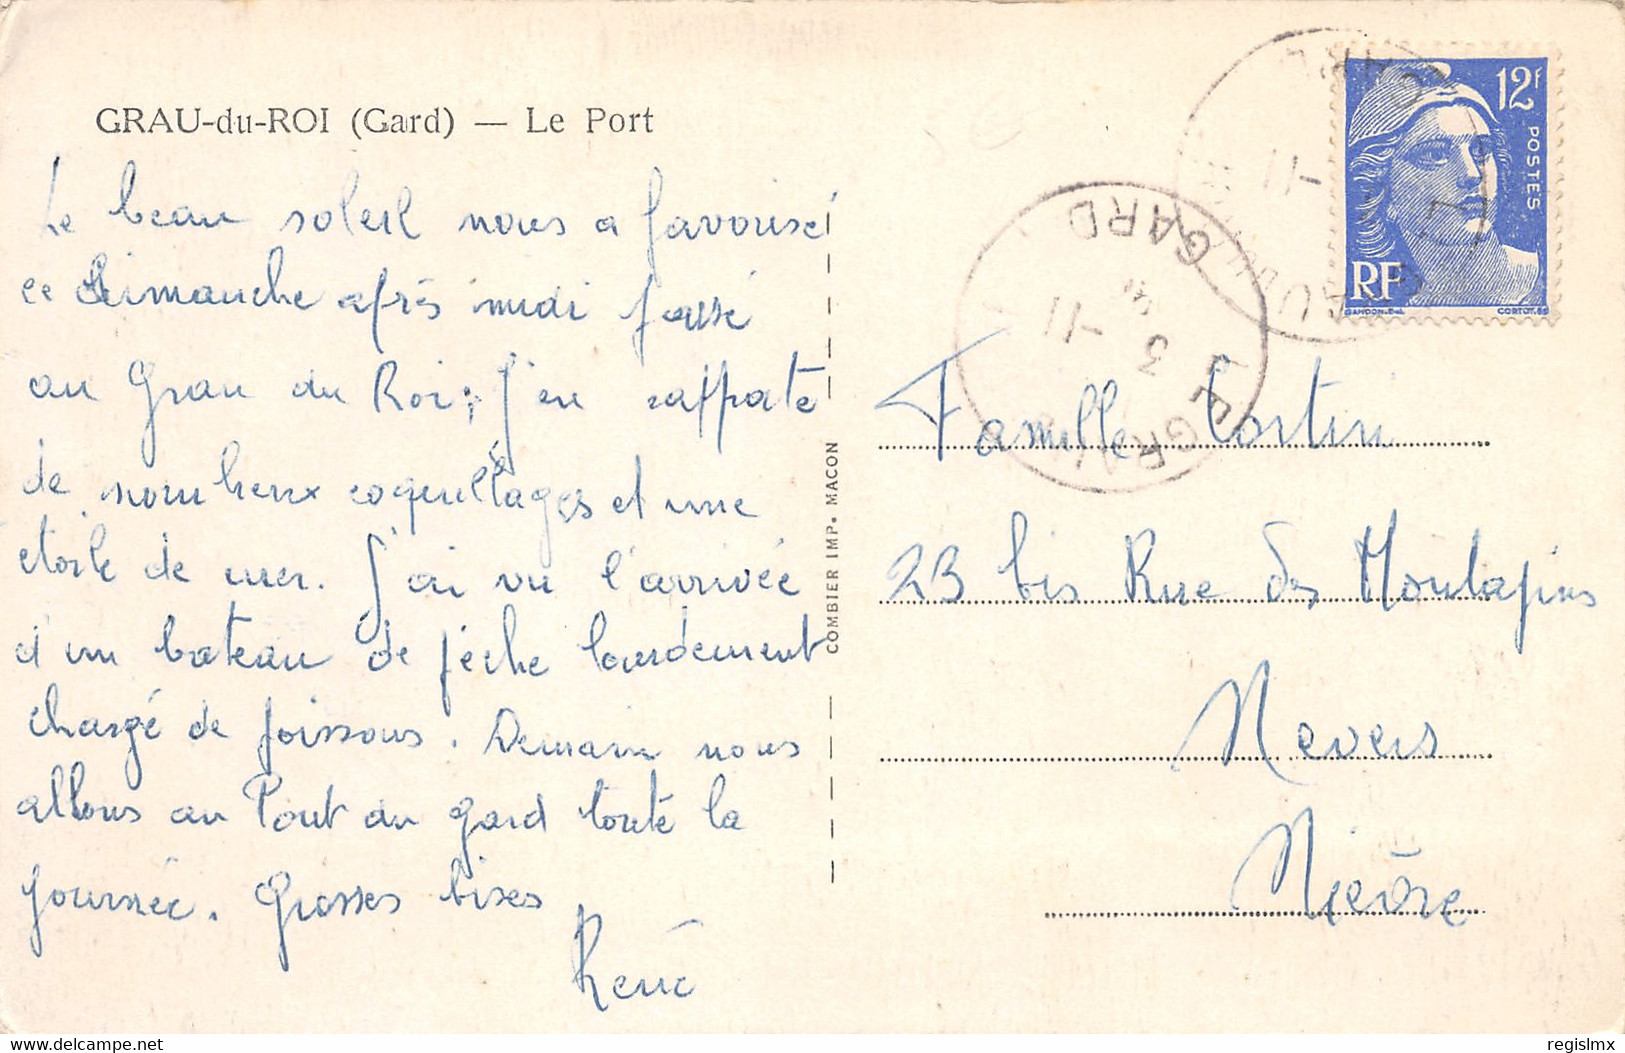 GRAU-du-ROI (Gard) — Le Port
Le beau soleil nous a favorisé
ce dimanche après midi passé
au Grau du Roi; J'en rapporte
de nombreux coquillages et une
étoile de mer. J'ai vu l'arrivée
d'un bateau de pêche lourdement
chargé de poissons. Demain nous
allons au Pont du Gard toute la
journée. Grosses bises
René
COMBIER IMP. MACON
12F
POSTES
RF
GANDON-Del.
CORTOT.SC
GARD
3 -11
LE GRAU
Famille Cortin
23 bis Rue des Moulapins
Nevers
Nièvre
www.delcampe.net
regislmx